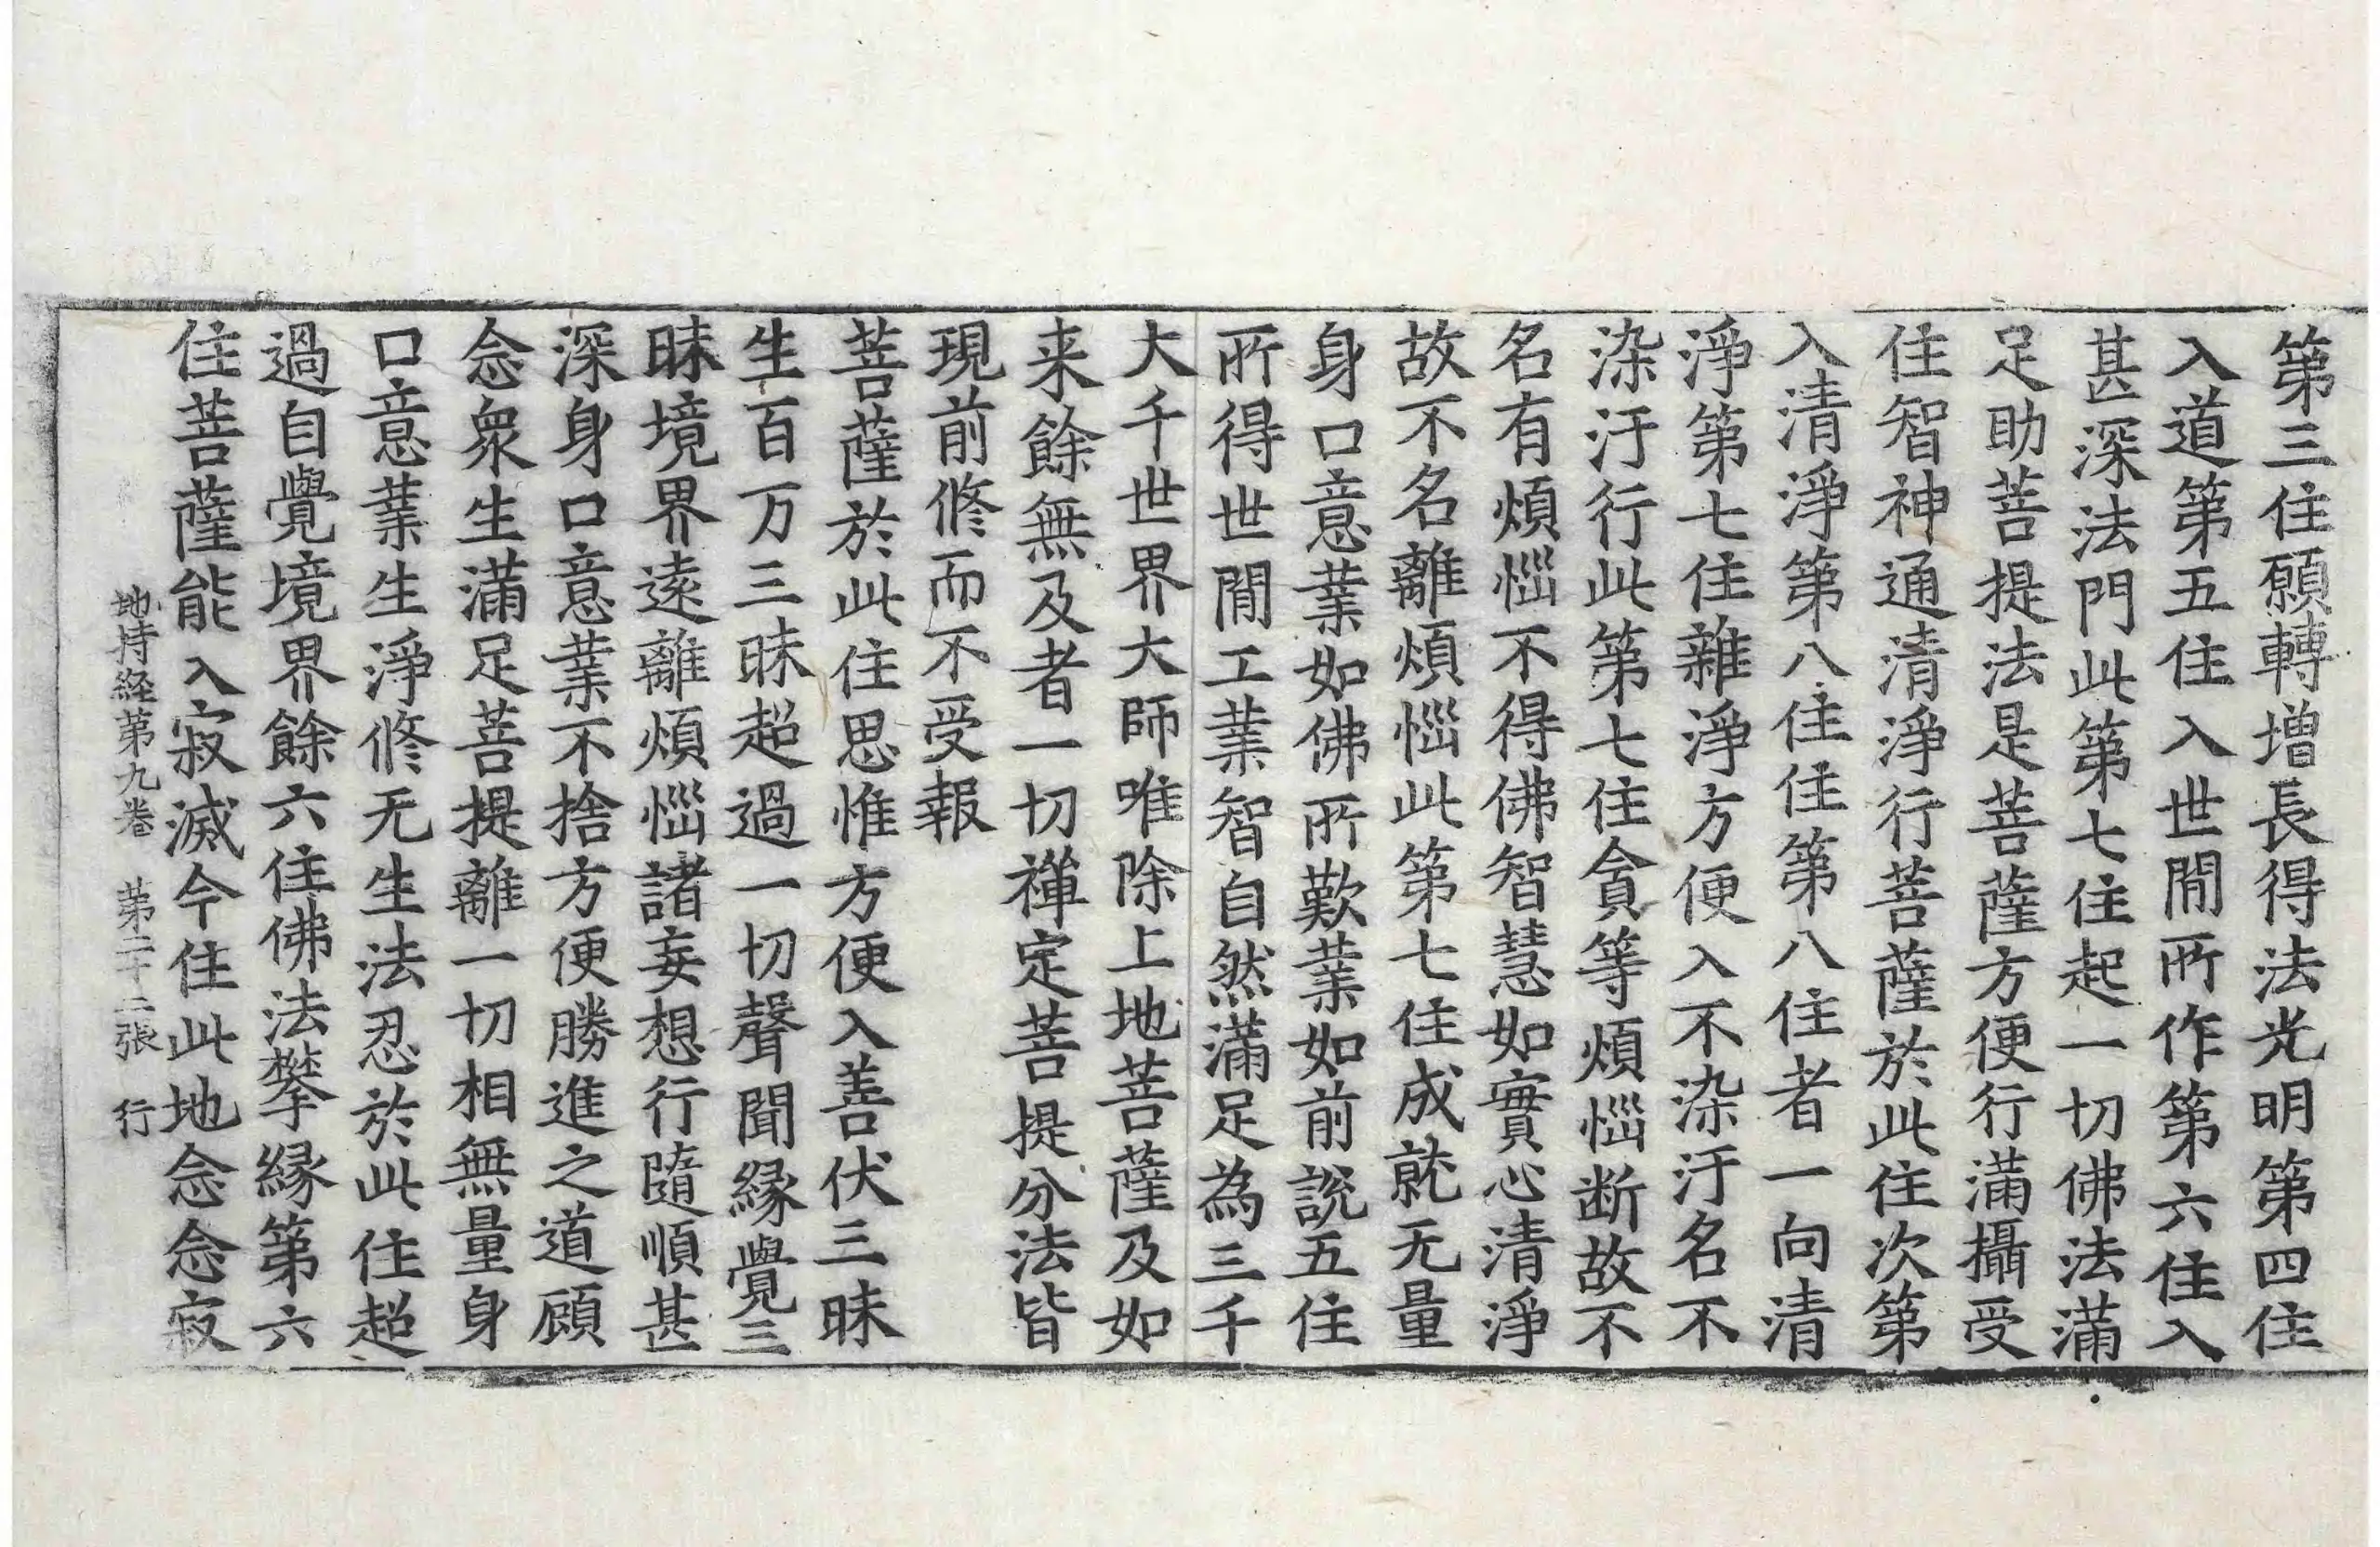 第三住願轉增長得法光明第四住
入道第五住入世間所作第六住入
甚深法門此第七住起一切佛法滿
足助菩提法是菩薩方便行滿攝受
住智神通清淨行菩薩於此住次第
入清淨第八住住第八住者一向清
淨第七住雜淨方便入不染汙名不
染汙行此第七住貪等煩惱断故不
名有煩惱不得佛智慧如實心清淨
故不名離煩惱此第七住成就无量
身口意業如佛所歎業如前說五住
所得世間工業智自然滿足為三千
大千世界大師唯除上地菩薩及如
来餘無及者一切禪定菩提分法皆
現前修而不受報
菩薩於此住思惟方便入善伏三昧
生百万三昧超過一切聲聞緣覺三
昧境界遠離煩惱諸妄想行隨順甚
深身口意業不捨方便勝進之道顧
念眾生滿足菩提離一切相無量身
口意業生淨修无生法忍於此住超
過自覺境界餘六住佛法攀緣第六
住菩薩能入寂滅今住此地念念寂
地持経第九卷　第二十二張　行